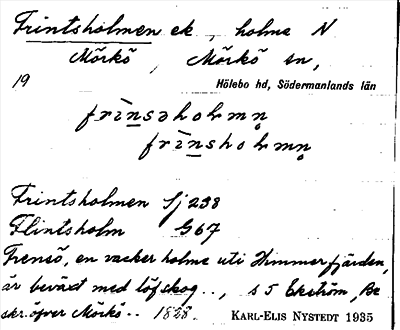 Frintsholmen ek, holme N
Mörkö, Mörkö sn,
19 Hölebo hd, Södermanlands län
frìnsəholmn̥
frìnsholmn̥
Frintsholmen Sj 238
Flintsholm G 67
Frensö, en vacker holme uti Himmerfjärden,
är beväxt med löfskog.., s 5 Ekström, Be
skr. öfver Mörkö.. 1828. KARL-ELIS NYSTEDT 1935